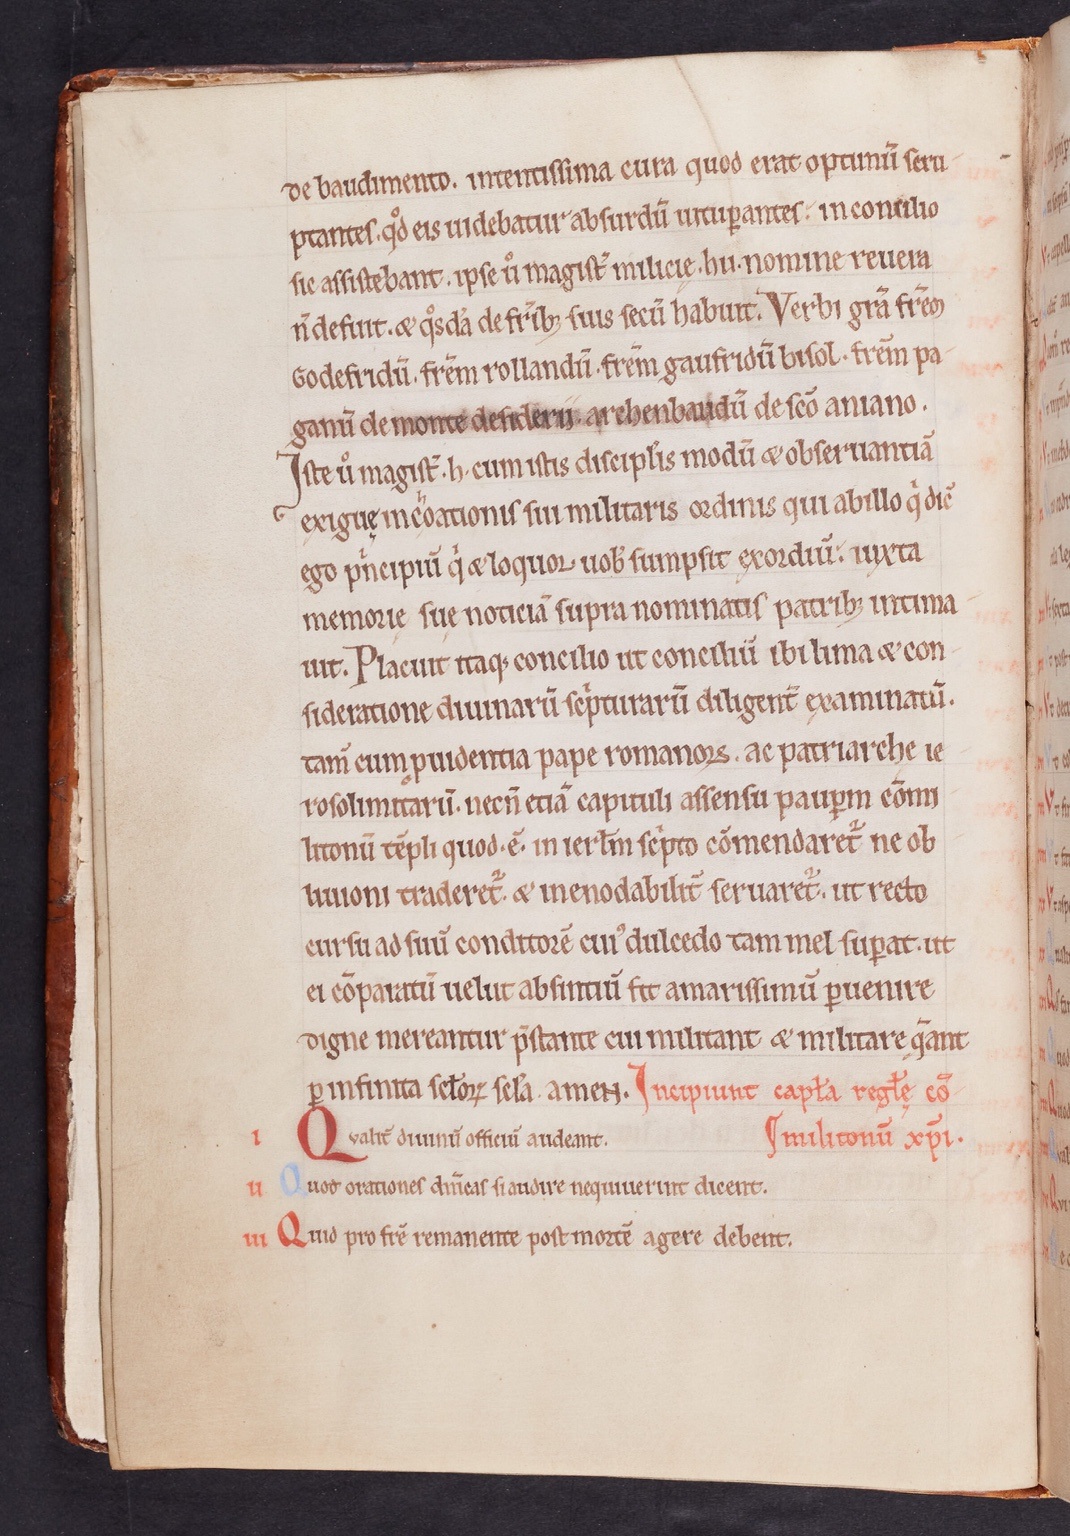 de baudimento. intentissima cura quod erat optimū scru
ptantes. qͦd eis uidebatur absurdū uituꝑantes. in concilio
sic assistebant. ipse uͦ magist̄ milicię. hu. nomine reuera
n̄ defuit. & qͦsdā de fr̄ib; suis secū habuit. Verbi grā fr̄em
Godefridū. fr̄em rollandū. fr̄em gaufridū bisol. frēm pa
ganū de monte desiderii. archenbaudū de scō aniano.
Iste uͦ magist̄. h. cum istis discipl̄is modū & obseruantiā
exiguę inchoationis sui militaris ordinis qui ab illo qͥ dic̄
ego pͥncipiū qͥ & loquor uob̄ sumpsit exordiū. iuxta
memorię suę noticiā supra nominatis patrib; intima
uit. Placuit itaq; concilio ut conciliū ibi lima & con
sideratione diuinarū scͥpturarū diligent̄ examinatū.
tam̄ cum ꝓuidentia pape romanoꝝ. ac patriarche ie
rosolimitarū. necn̄ etiā capituli assensu pauꝑum cōmi
litonū tēpli quod. ē. in ierl̄m scͥpto cōmendaret᷑ ne ob
liuioni traderet᷑. & inenodabilit̄ seruaret᷑. ut recto
cursu ad suū conditorē cuiꝰ dulcedo tam mel suꝑat. ut
ei cōparatū uelut absintiū fit amarissimū ꝑuenire
digne mereantur p̄stante cui militant & militare q̄ant
ꝑ infinita sc̄loꝝ sc̄la. amen. Incipiunt capl̄a regl̄ę cō
militonū xp̄i.
i Qvalit̄ diuinū officiū audeant.
ii Quot orationes dn̄icas si audire nequiuerint dicent.
iii Quid pro fr̄e remanente post mortē agere debent.